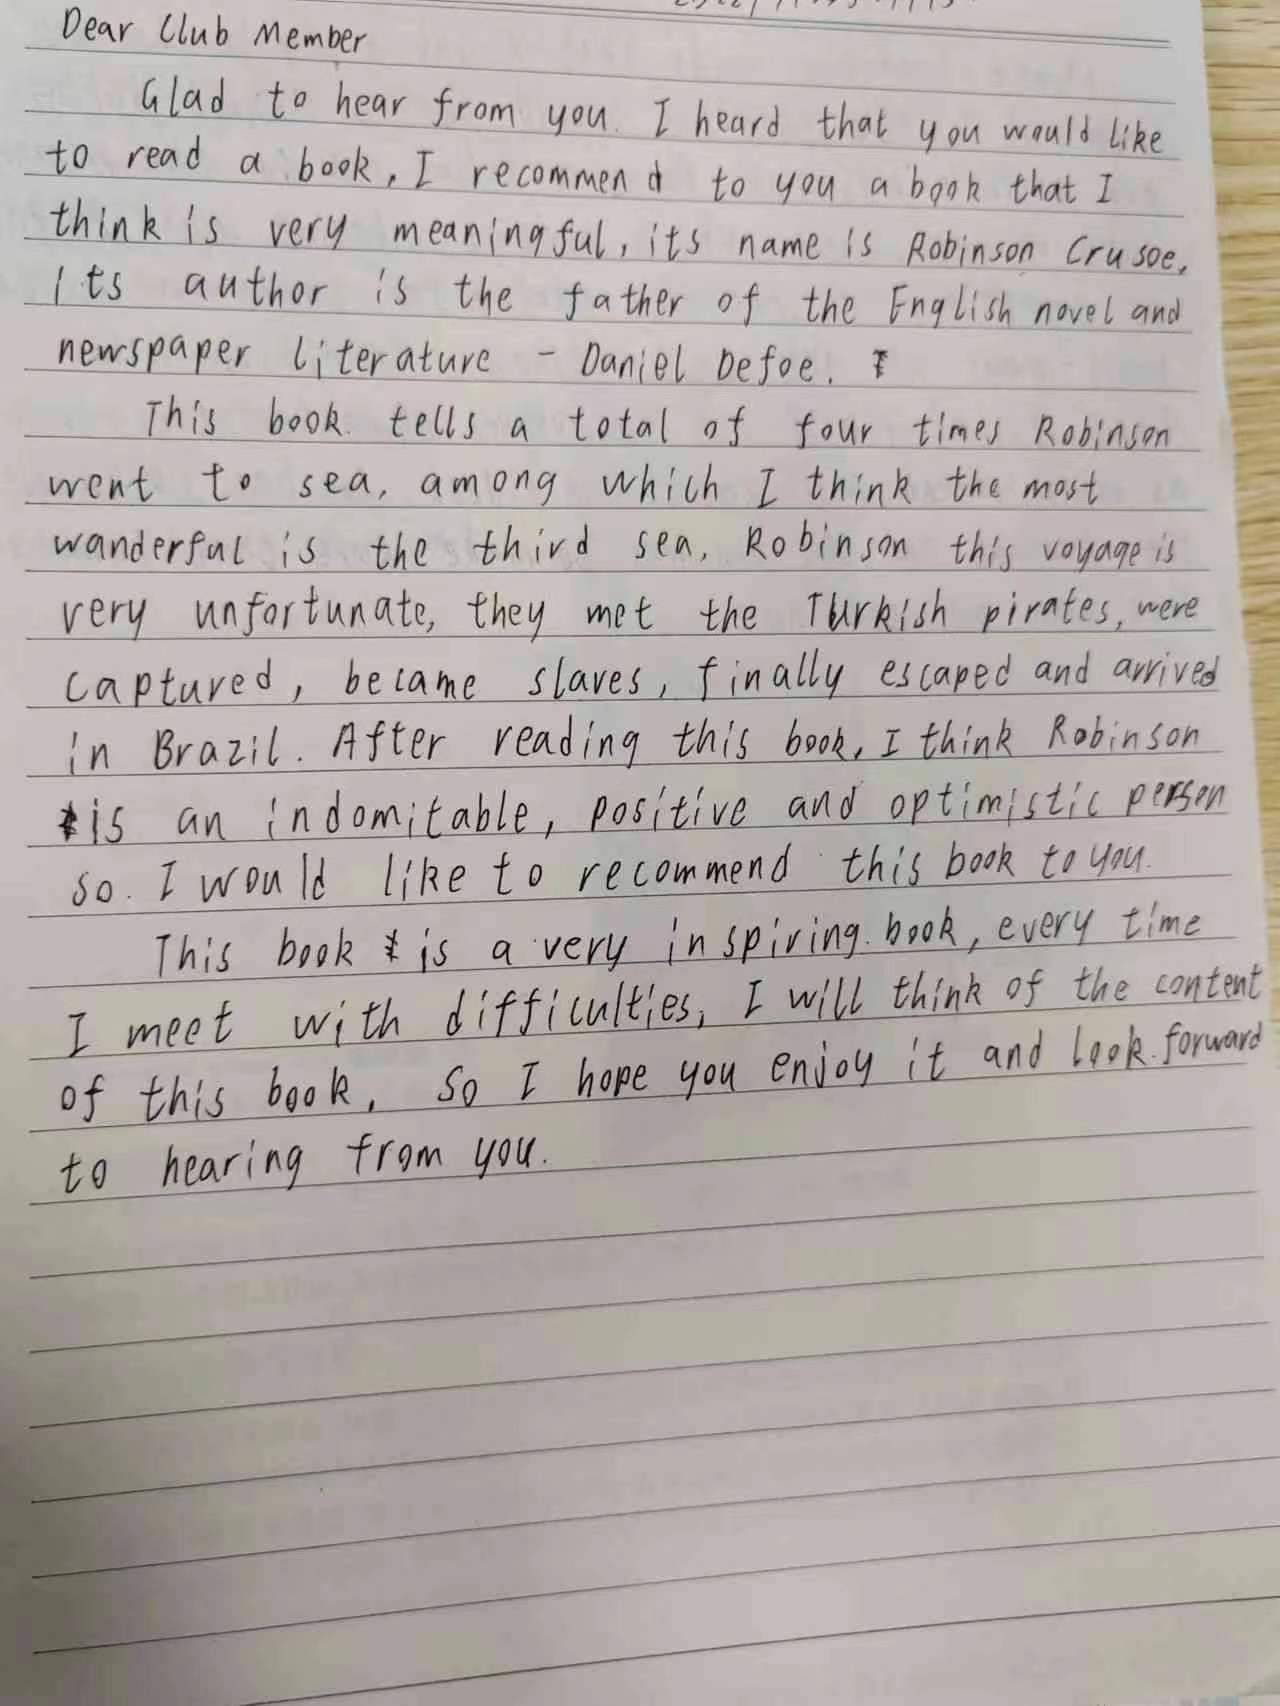 Dear Club Member
Glad to hear from you. I heard that you would like
to read a book, I recommend to you a book that I
think is very meaningful, its name is Robinson Crusoe,
Its author is the father of the English novel and
newspaper literature - Daniel Defoe.
This book tells a total of four times Robinson
went to sea, among which I think the most
wanderful is the third sea, Robinson this voyage is
very unfortunate, they met the Turkish pirates, were
captured, became slaves, finally escaped and arrived
in Brazil. After reading this book, I think Robinson
is an indomitable, positive and optimistic person
so. I would like to recommend this book to you.
This book is a very inspiring book, every time
I meet with difficulties, I will think of the content
of this book, so I hope you enjoy it and look forward
to hearing from you.